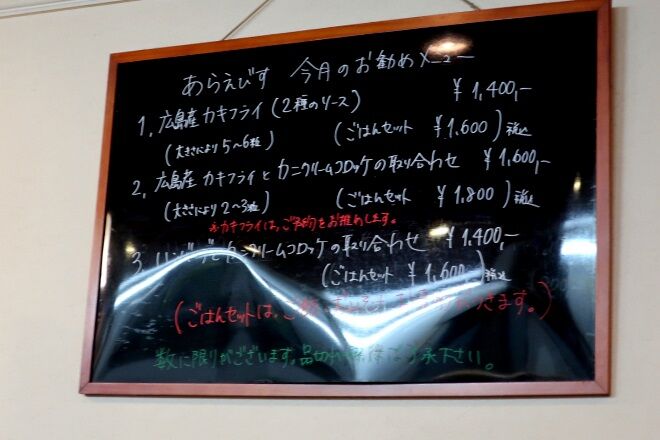 あらえびす 今月のお勧めメニュー
1, 広島産 カキフライ (2種のソース) ¥1,400,-
(大きさにより5〜6粒) (ごはんセット ¥1,600) 税込
2, 広島産 カキフライとカニクリームコロッケの取り合わせ ¥1,600,-
(大きさにより2〜3粒) (ごはんセット ¥1,800) 税込
※カキフライは、ご予約をお推めします。
3, カニクリームコロッケの取り合わせ ¥1,400,-
(ごはんセット ¥1,600) 税込
(ごはんセットは、ご飯、 きます。)
数に限りがございます。品切れの際はご了承下さい。